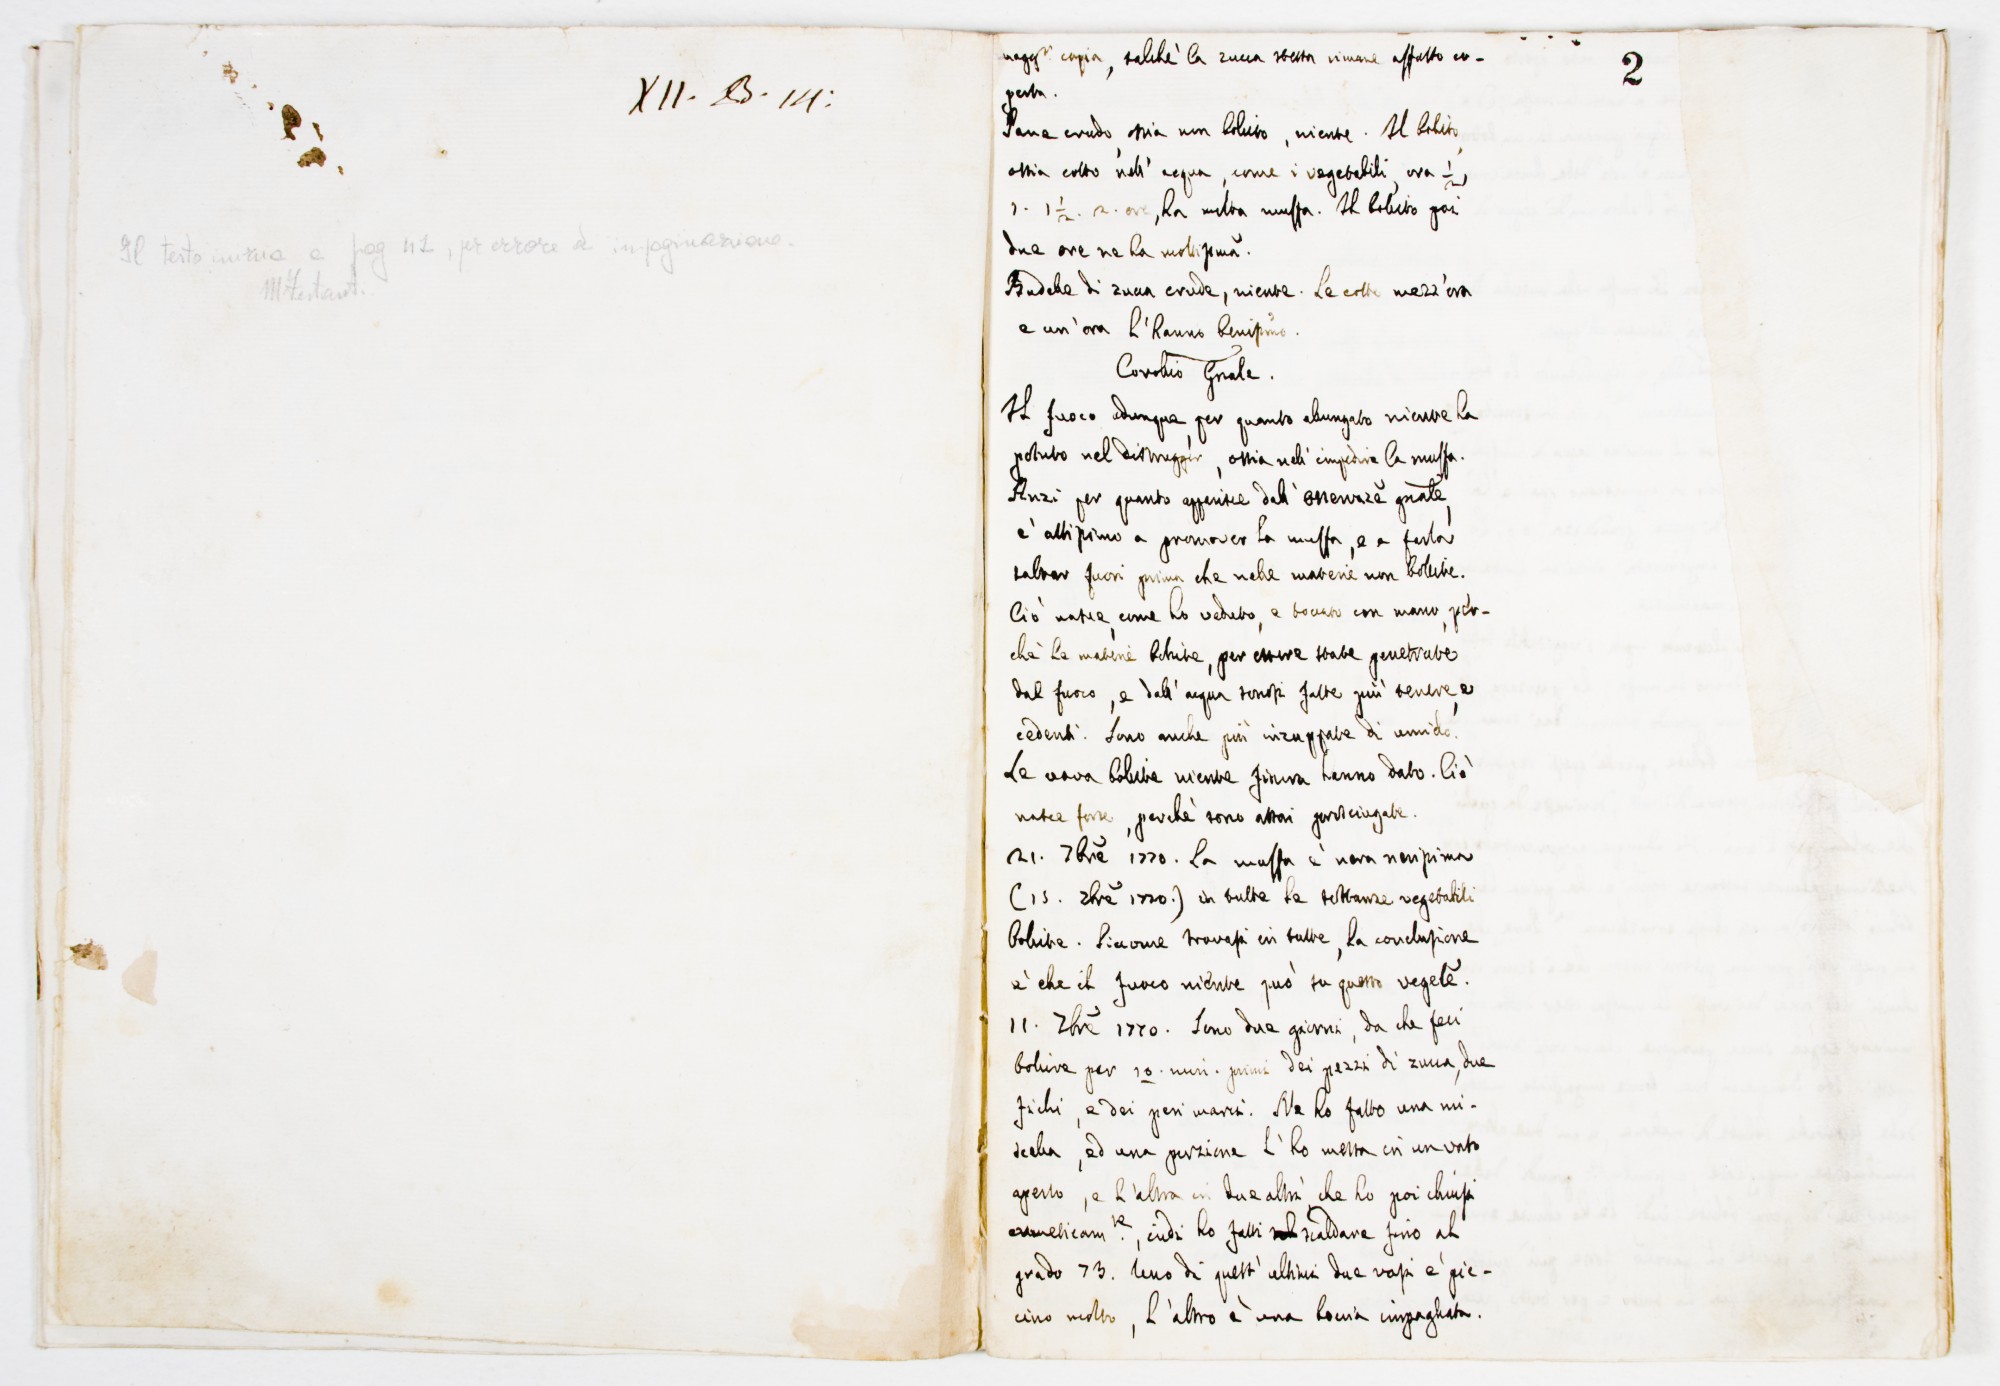 XII. B. 14:
Il testo inizia a pag 42, per errore di impaginazione.
2
magg.r copia, talchè la zucca stessa rimane affatto co-
perta.
Pane crudo, ossia non bollito, niente. Il bollito,
ossia cotto nell' acqua, come i vegetabili, ora 1/2,
1. 1 1/2. 2. ore, ha molta muffa. Il bollito poi
due ore ne ha moltissma.
di zucca crude, niente. Le cotte mezz'ora
e un'ora l'hanno benissmo.
Corollio Gnale.
Il fuoco adunque, per quanto allungato niente ha
potuto nel distrugger, ossia nell' impedire la muffa.
Anzi per quanto apparisce dall' osservaze gnale,
è attissimo a promover la muffa, e a farla
saltar fuori prima che nelle materie non bollite.
Ciò nasce, come ho veduto, e toccato con mano, per-
chè le materie bollite, per essere state penetrate
dal fuoco, e dall' acqua sonosi fatte più tenere, e
cedenti. Sono anche più inzuppate di umido.
Le uova bollite niente finora hanno dato. Ciò
nasce forse, perchè sono assai prosciugate.
21. 7bre 1770. La muffa è nera nerissima
(15. 7bre 1770.) in tutte le sostanze vegetabili
bollite. Siccome trovasi in tutte, la conclusione
è che il fuoco niente può su questo vegele.
11. 7bre 1770. Sono due giorni, da che feci
bollire per 10. min. primi dei pezzi di zucca, due
fichi, e dei peri marci. Ne ho fatto una mi-
scella, ed una porzione l' ho messa in un vaso
aperto, e l'altra in due altri, che ho poi chiusi
ermeticam.te, indi ho fatti scaldare fino al
grado 73. Uno di quest' ultimi due vasi è pic-
cino molto, l'altro è una boccia impagliata.